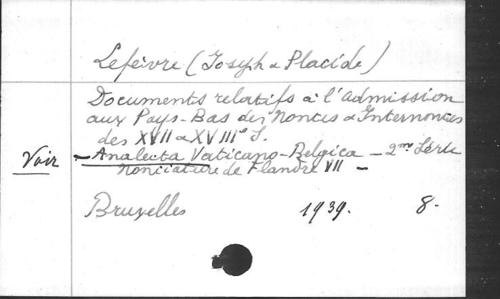 Lefèvre (Joseph & Placide)
Documents relatifs à l'admission
aux Pays-Bas des Nonces & Internonces
des XVII & XVIIIe S.
Voir - Analecta Vaticano-Belgica - 2me Série
Nonciature de Flandre VII -
Bruxelles 1939. 8-